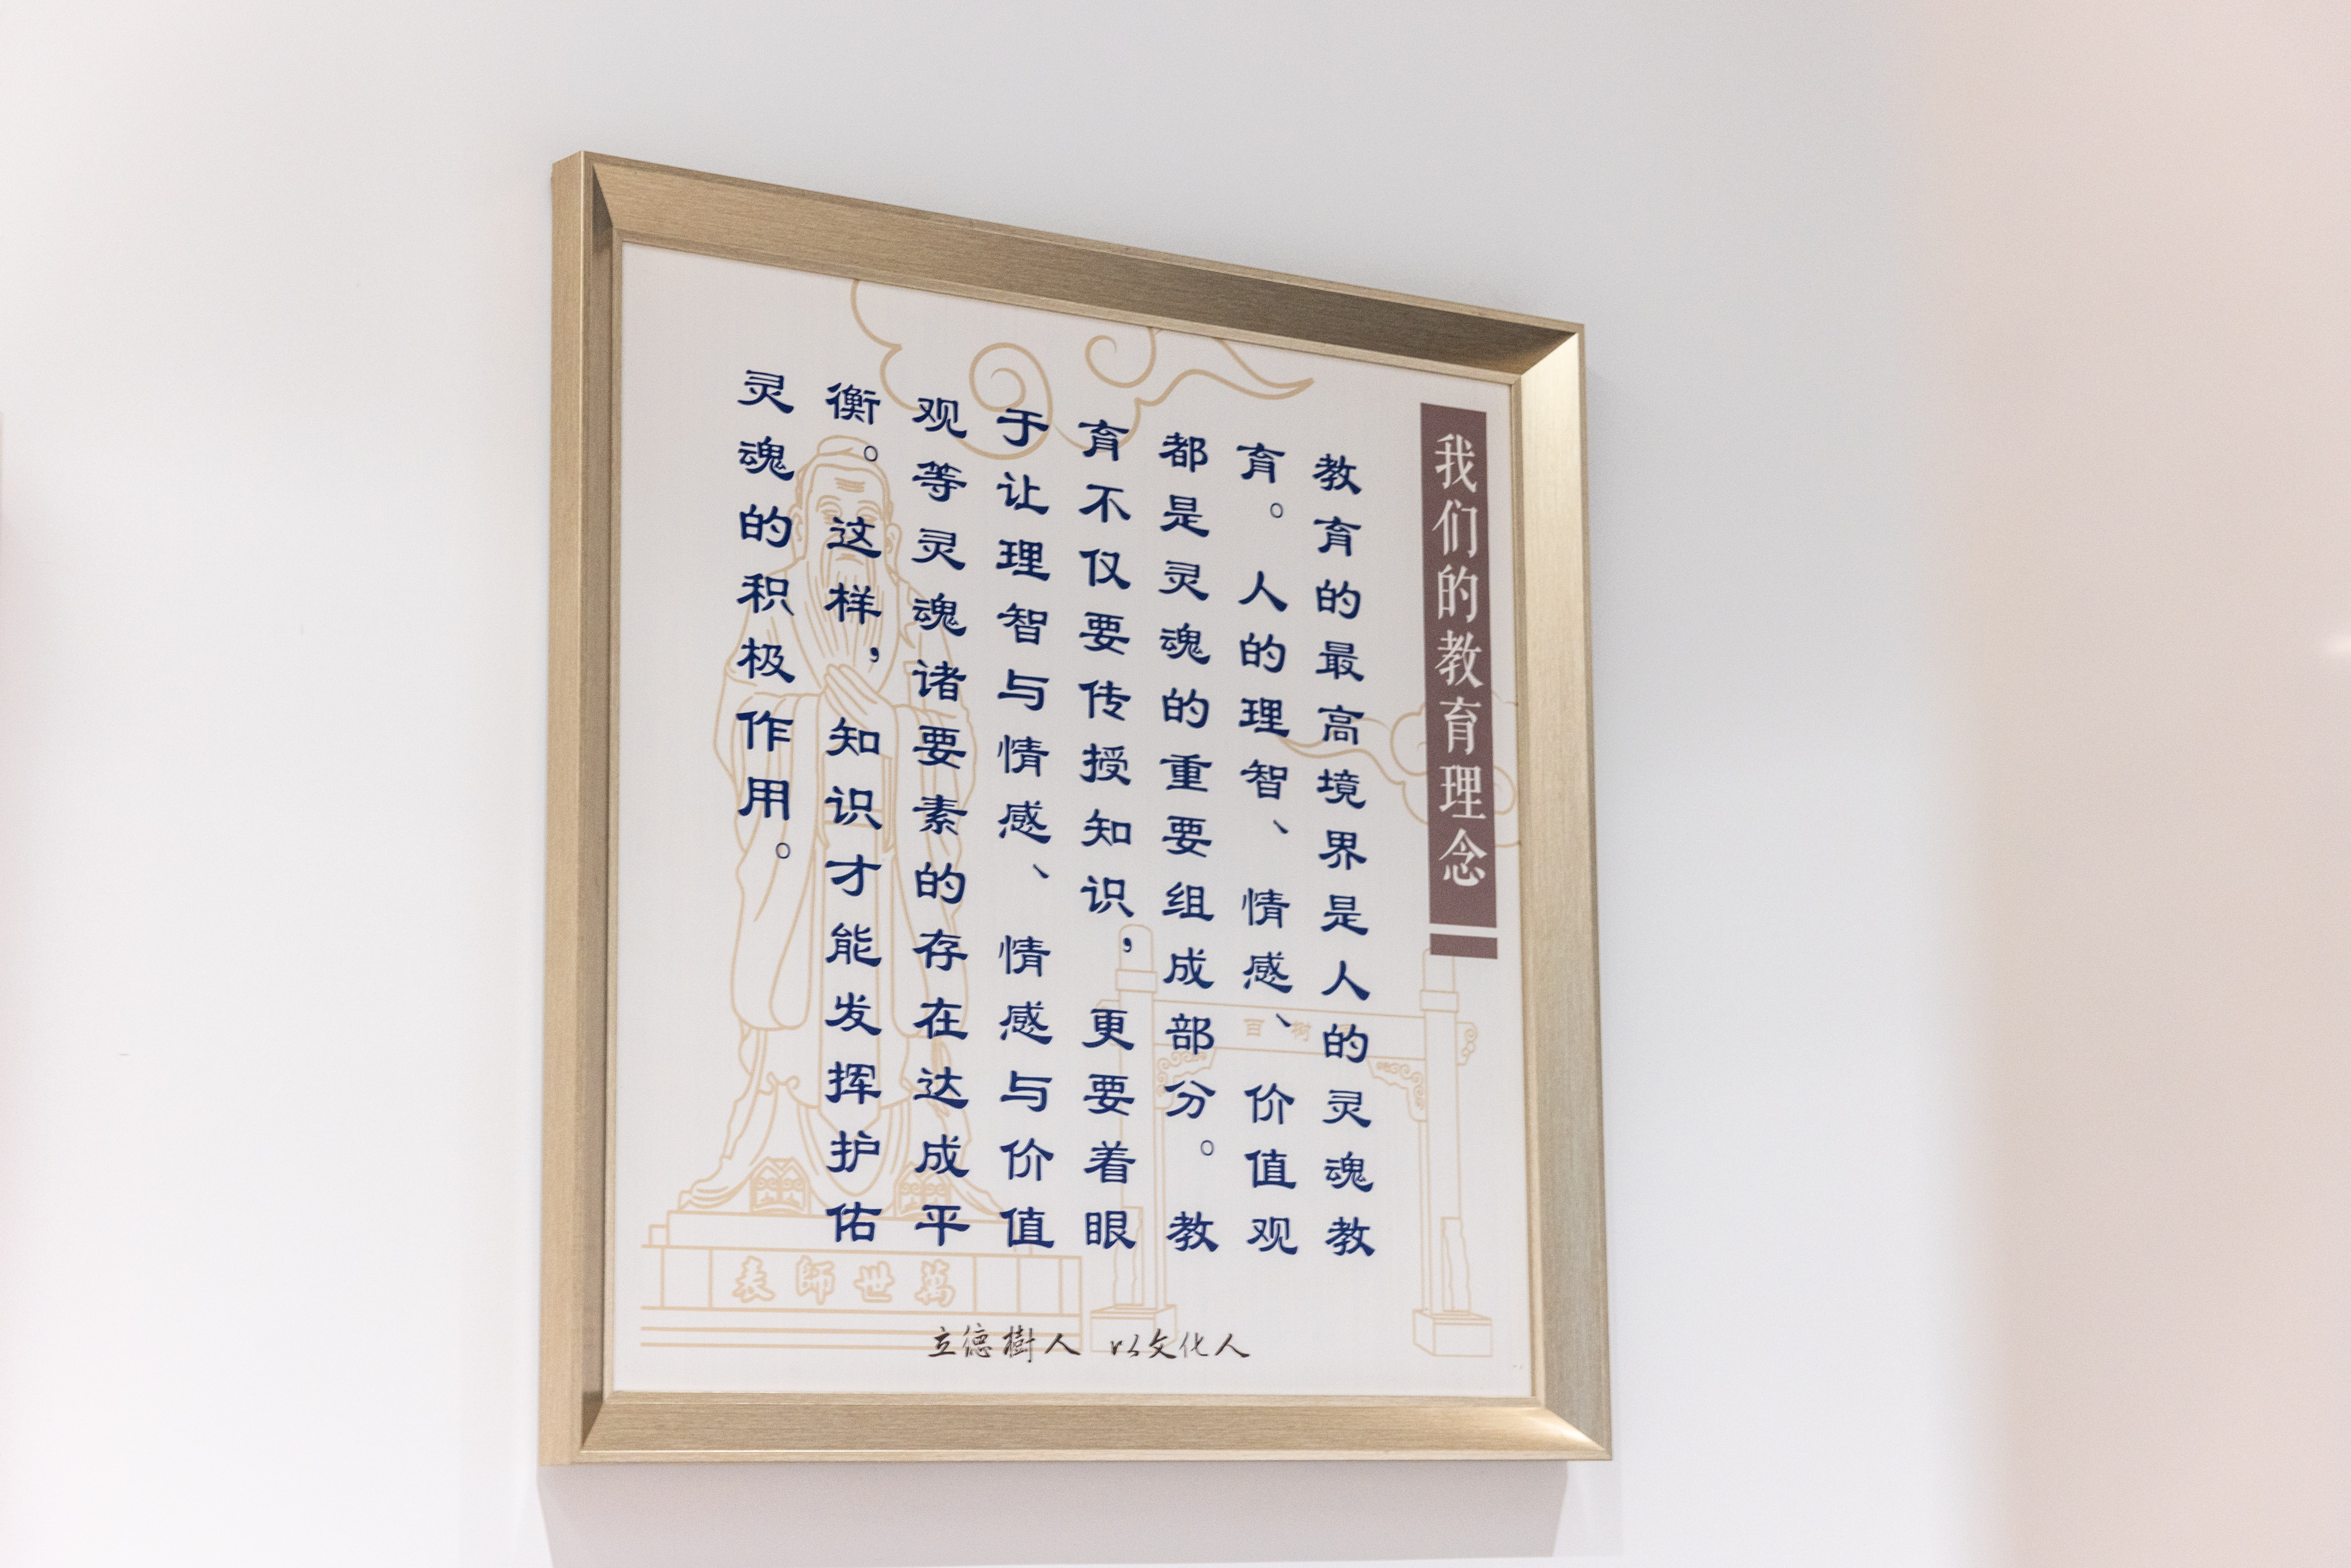 我们的教育理念
教育的最高境界是人的灵魂教
育。人的理智、情感、价值观
都是灵魂的重要组成部分。教
育不仅要传授知识，更要着眼
于让理智与情感、情感与价值
观等灵魂诸要素的存在达成平
衡。这样，知识才能发挥护佑
灵魂的积极作用。
百树
萬世師表
立德樹人 以文化人